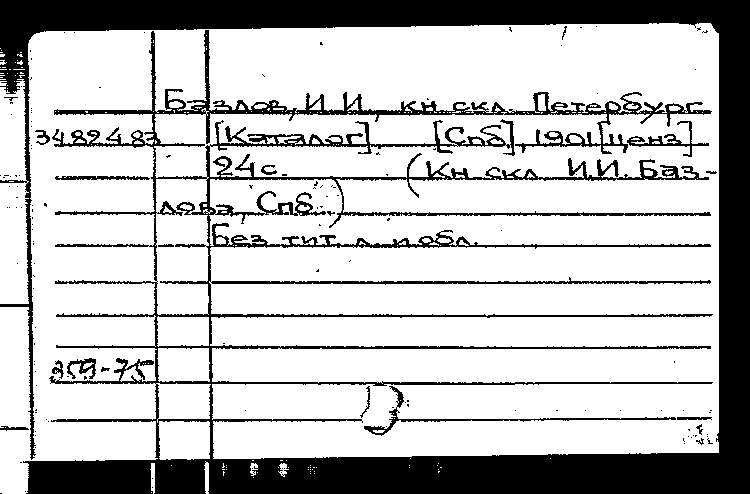 Базлов, И.И., кн. скл. Петербург.
34.82.4.83 [Каталог]. [Спб.], 1901 [ценз.]
24 с. (Кн. скл. И.И. Баз-
лова, Спб.)
Без тит. л. и обл.
359-75